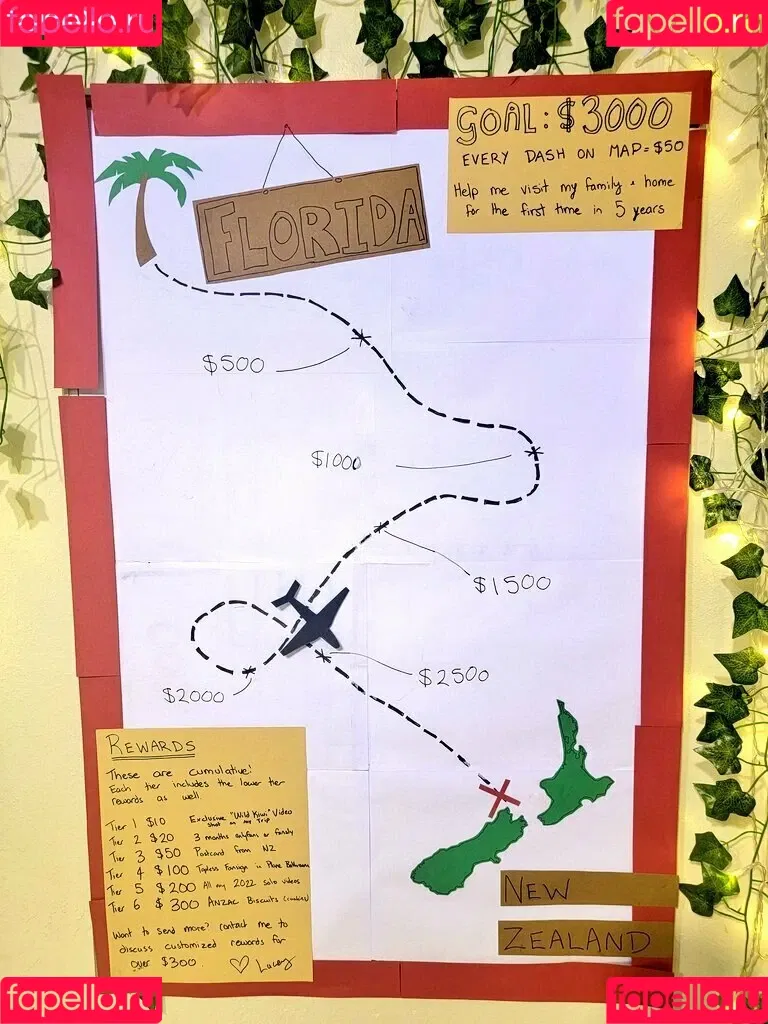 fapello.ru
fapello.ru
GOAL: $3000
EVERY DASH ON MAP = $50
Help me visit my family + home
for the first time in 5 years
FLORIDA
$500
$1000
$1500
$2000
$2500
REWARDS
These are cumulative!
Each tier includes the lower tier
rewards as well.
Tier 1 $10 Exclusive "Wild Kiwi" Video
shot on my trip
Tier 2 $20 3 months onlyfans or fansly
Tier 3 $50 Postcard from NZ
Tier 4 $100 Topless Fansign in Plane Bathroom
Tier 5 $200 All my 2022 solo videos
Tier 6 $300 ANZAC Biscuits (cookies)
Want to send more? contact me to
discuss customized rewards for
over $300 ♡ Lucy
NEW
ZEALAND
fapello.ru
fapello.ru